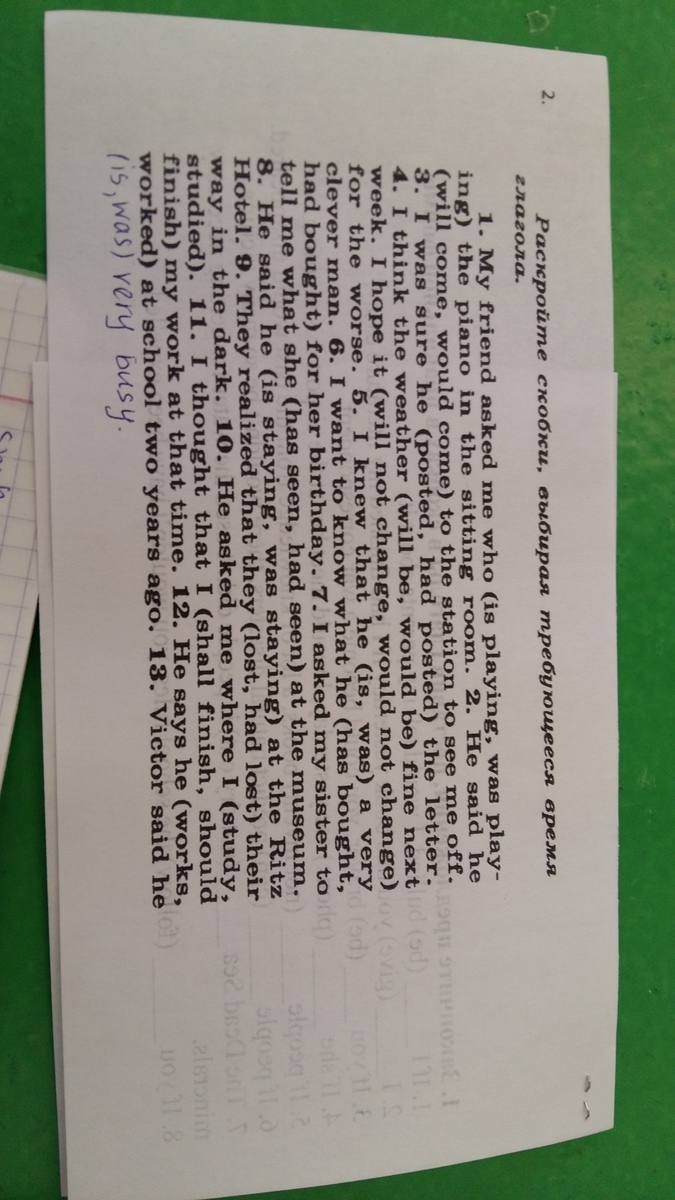 2. Раскройте скобки, выбирая требующееся время
глагола.
1. My friend asked me who (is playing, was play-
ing) the piano in the sitting room. 2. He said he
(will come, would come) to the station to see me off.
3. I was sure he (posted, had posted) the letter.
4. I think the weather (will be, would be) fine next
week. I hope it (will not change, would not change)
for the worse. 5. I knew that he (is, was) a very
clever man. 6. I want to know what he (has bought,
had bought) for her birthday. 7. I asked my sister to
tell me what she (has seen, had seen) at the museum.
8. He said he (is staying, was staying) at the Ritz
Hotel. 9. They realized that they (lost, had lost) their
way in the dark. 10. He asked me where I (study,
studied). 11. I thought that I (shall finish, should
finish) my work at that time. 12. He says he (works,
worked) at school two years ago. 13. Victor said he
(is, was) very busy.